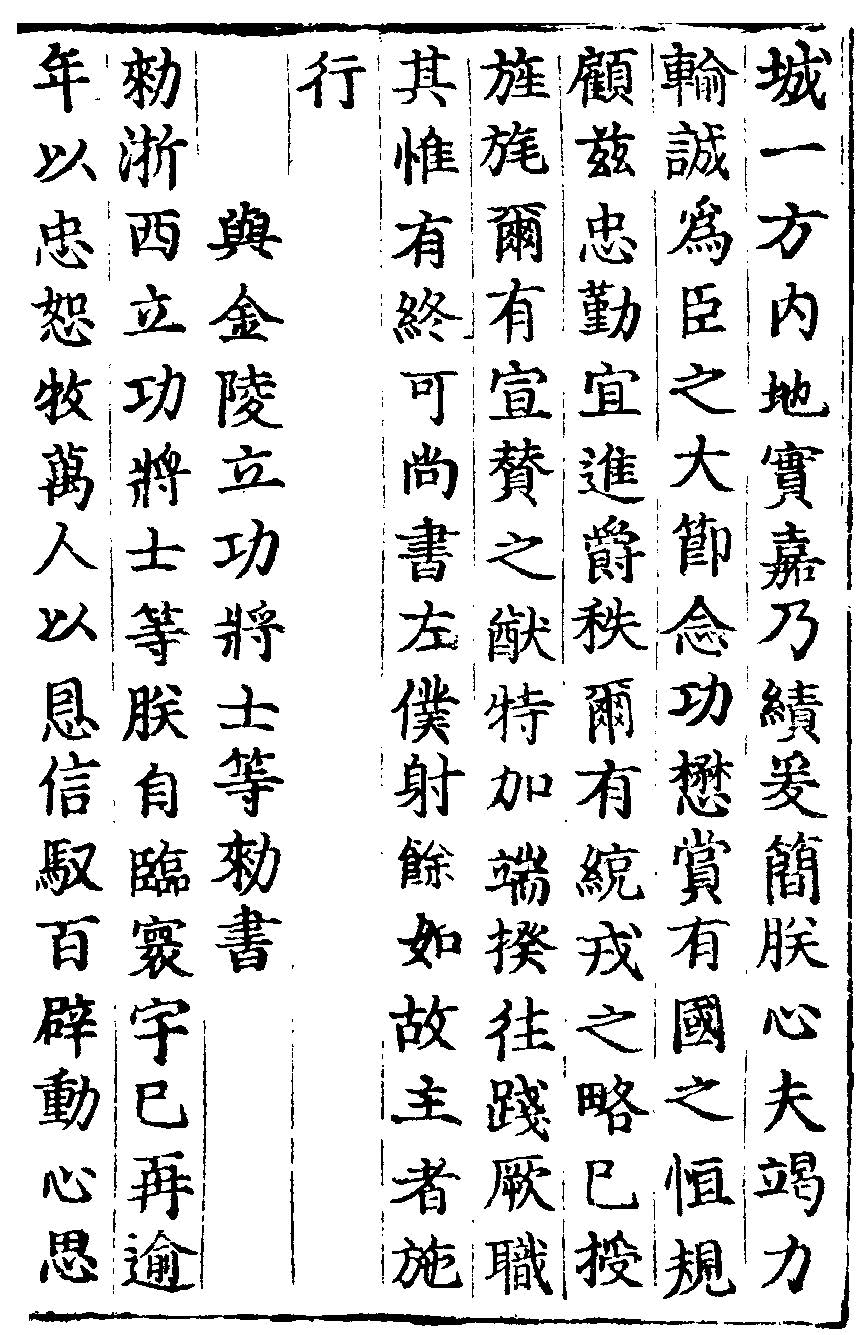 城一方内地實嘉乃績爰簡朕心夫竭力
輸誠爲臣之大節念功懋賞有國之恒規
顧兹忠勤宜進爵秩爾有統戎之略已授
旌旄爾有宣贊之猷特加端揆往踐厥職
其惟有終可尚書左僕射餘如故主者施
行
與金陵立功將士等勑書
勑浙西立功將士等朕自臨寰宇已再逾
年以忠恕牧萬人以恩信馭百辟動心思